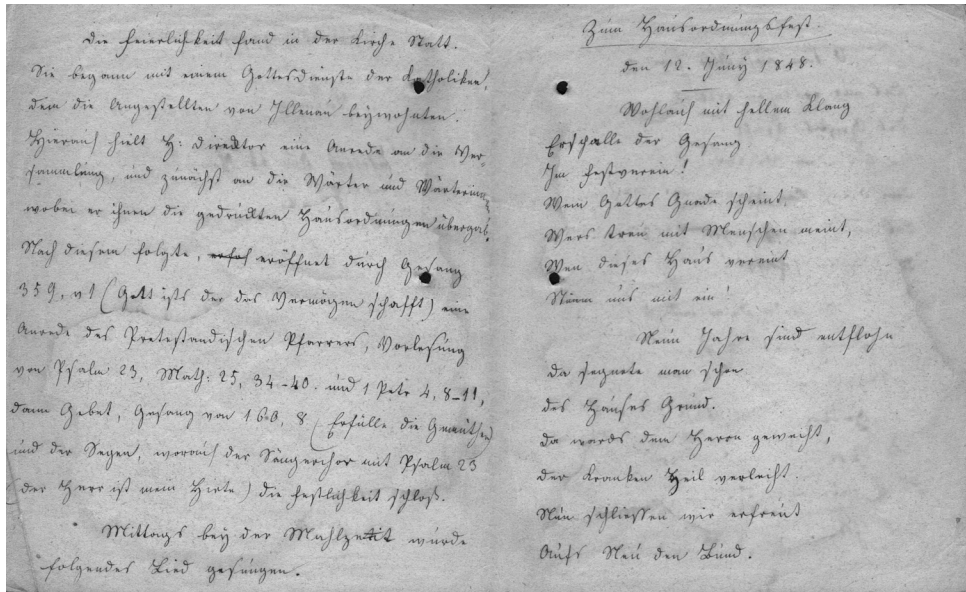 Die Feierlichkeit fand in der Kirche Statt.
Sie begann mit einem Gottesdienste der Katholiken,
dem die Angestellten von Illenau beywohnten.
Hierauf hielt H: Direktor eine Anrede an die Ver-
sammlung, und zunächst an die Wärter und Wärterinnen
wobei er ihnen die gedruckten Hausordnungen übergab.
Nach diesem folgte, eröffnet durch Gesang
359, v1 (Gott ists der das Vermögen schafft) eine
Anrede des Protestandischen Pfarrers, Vorlesung
von Psalm 23, Math: 25, 34-40. und 1 Petr 4, 8-11,
dann Gebet, Gesang von 160, 8 (Erfülle die Gemüther)
und der Segen, worauf der Sängerchor mit Psalm 23
(der Herr ist mein Hirte) die Festlichkeit schloß.
Mittags bey der Mahlzeit wurde
folgendes Lied gesungen.
Zum Hausordnungsfest.
den 12. Juny 1848.
Wohlauf mit hellem Klang
Erschalle der Gesang
Im Festverein!
Wem Gottes Gnade scheint,
Wers treu mit Menschen meint,
Wen dieses Haus vereint
Stimm uns mit ein!
Neun Jahre sind entflohn
da segnete man schon
des Hauses Grund.
da wards dem Herrn geweiht,
der Kranken Heil verleiht.
Nun schliessen wir erfreut
Aufs Neu den Bund.